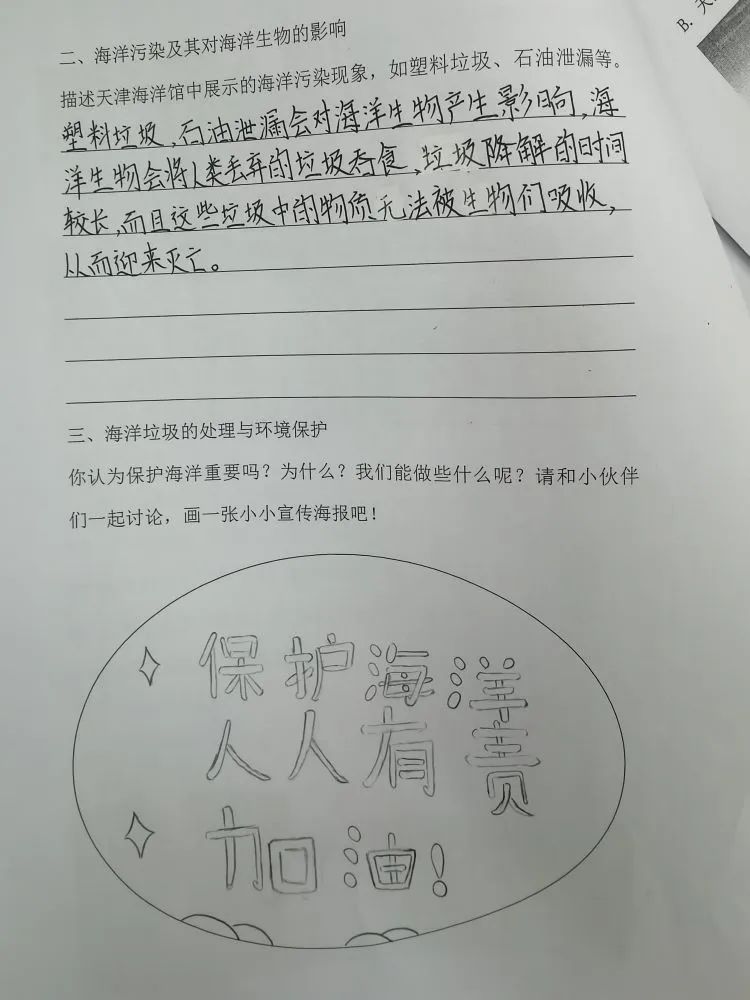 二、海洋污染及其对海洋生物的影响
描述天津海洋馆中展示的海洋污染现象，如塑料垃圾、石油泄漏等。
塑料垃圾，石油泄漏会对海洋生物产生影响，海
洋生物会将人类丢弃的垃圾吞食，垃圾降解的时间
较长，而且这些垃圾中的物质无法被生物们吸收，
从而迎来灭亡。
三、海洋垃圾的处理与环境保护
你认为保护海洋重要吗？为什么？我们能做些什么呢？请和小伙伴
们一起讨论，画一张小小宣传海报吧！
保护海洋
人人有责
加油！
B. 天